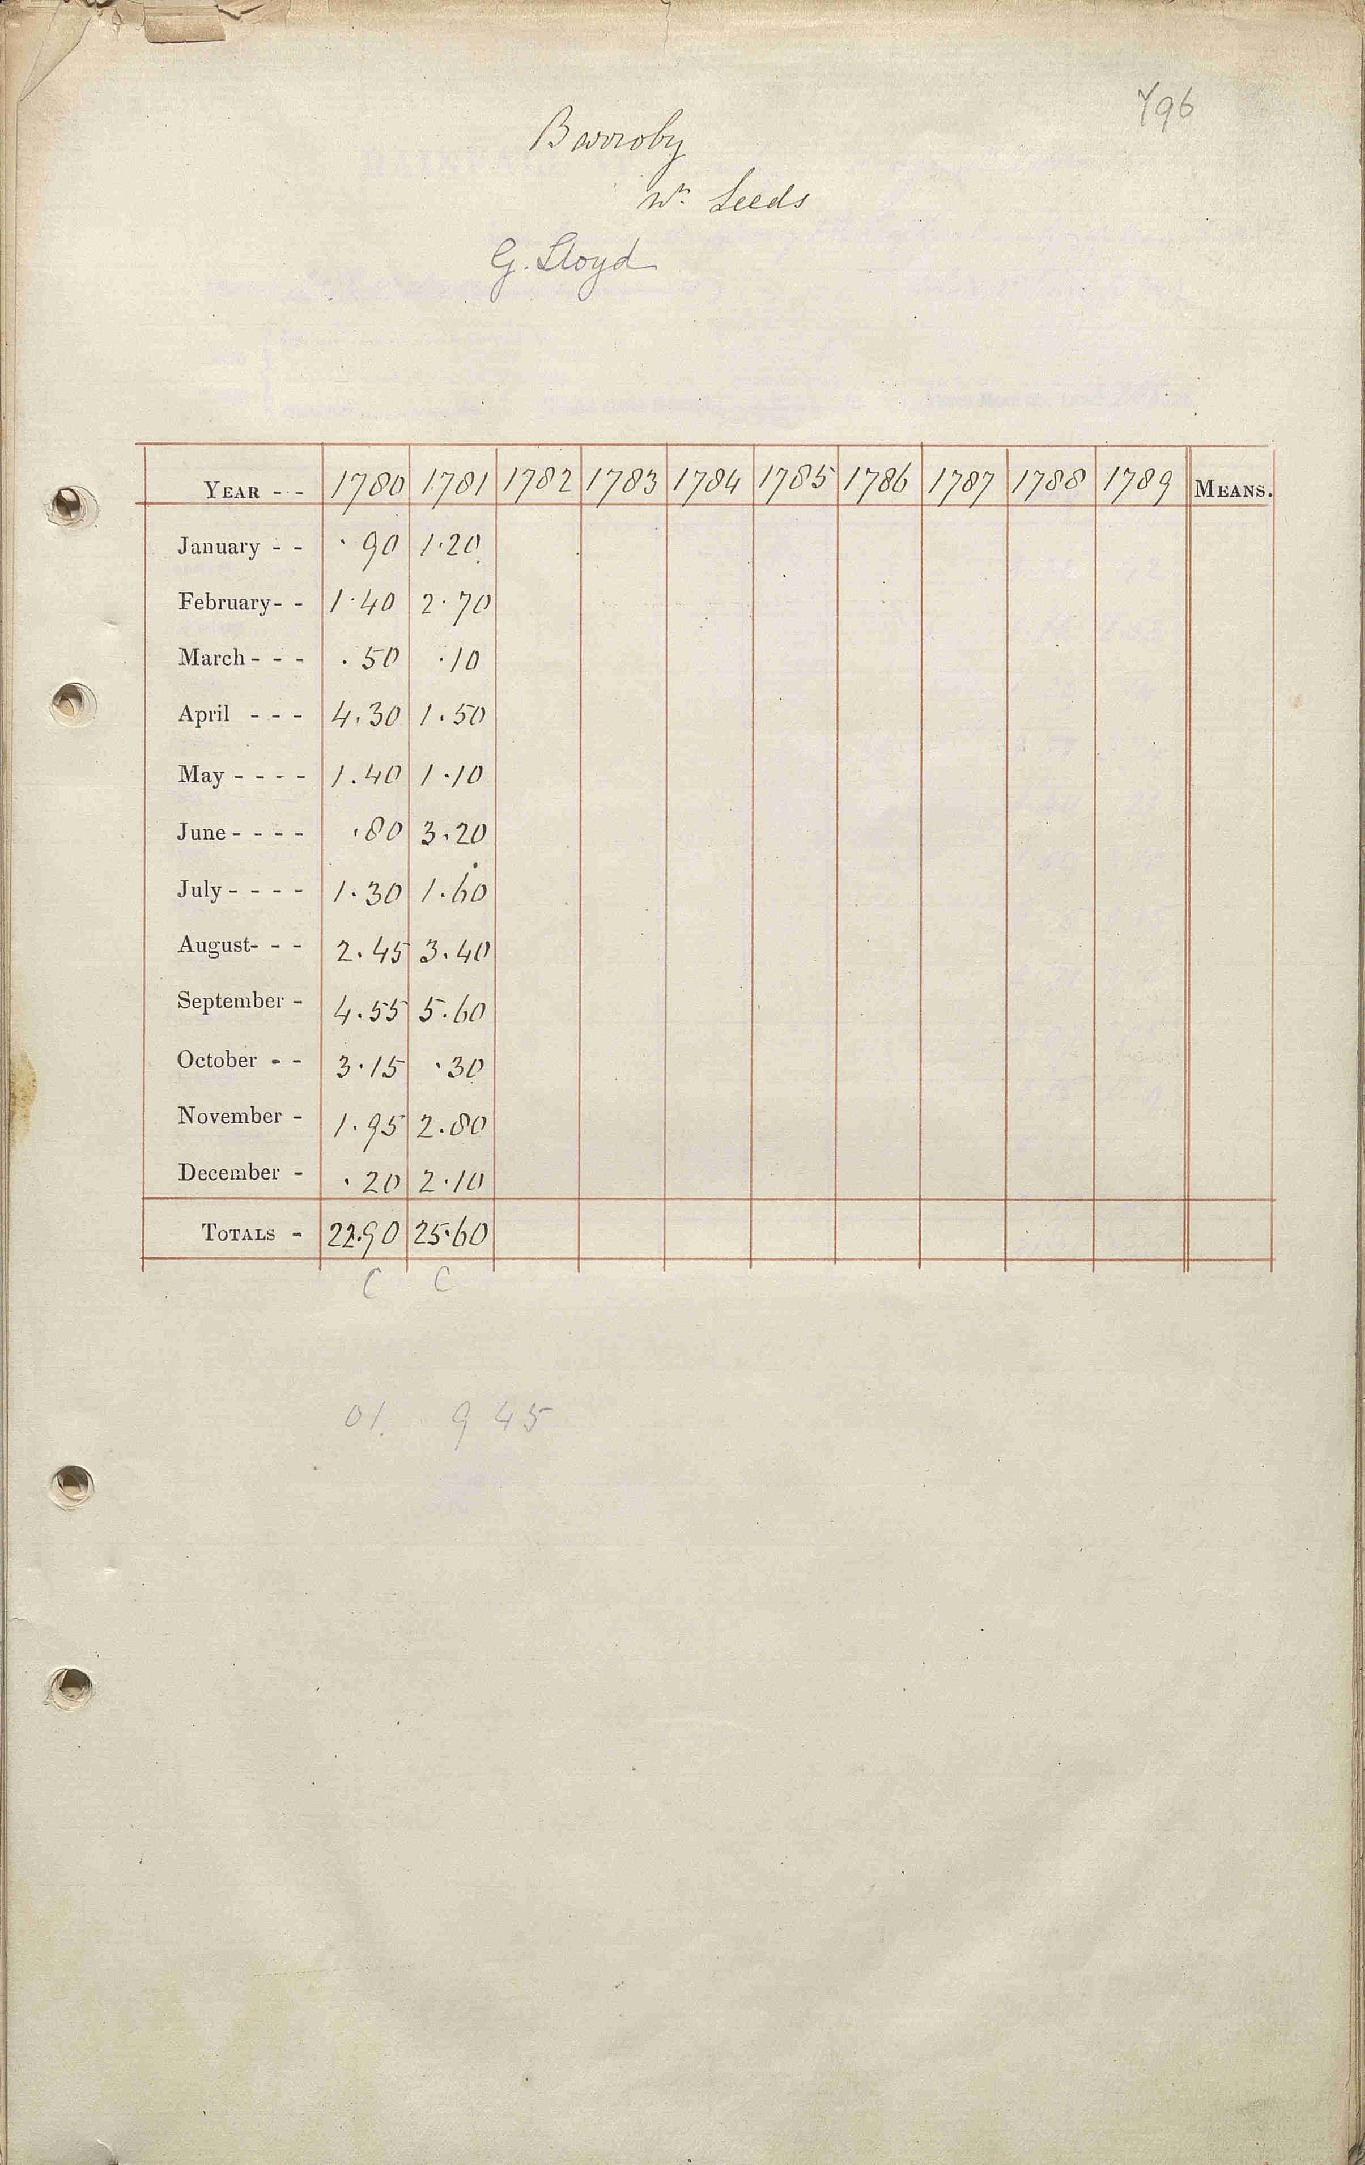 Y96
Barroby
Nr. Leeds
G. Lloyd
YEAR - - 1780 1781 1782 1783 1784 1785 1786 1787 1788 1789 MEANS.
January - - .90 1.20
February - - 1.40 2.70
March - - - .50 .10
April - - - 4.30 1.50
May - - - - 1.40 1.10
June - - - - .80 3.20
July - - - - 1.30 1.60
August - - - 2.45 3.40
September - 4.55 5.60
October - - 3.15 .30
November - 1.95 2.80
December - .20 2.10
TOTALS - 22.90 25.60
C C
01. 945